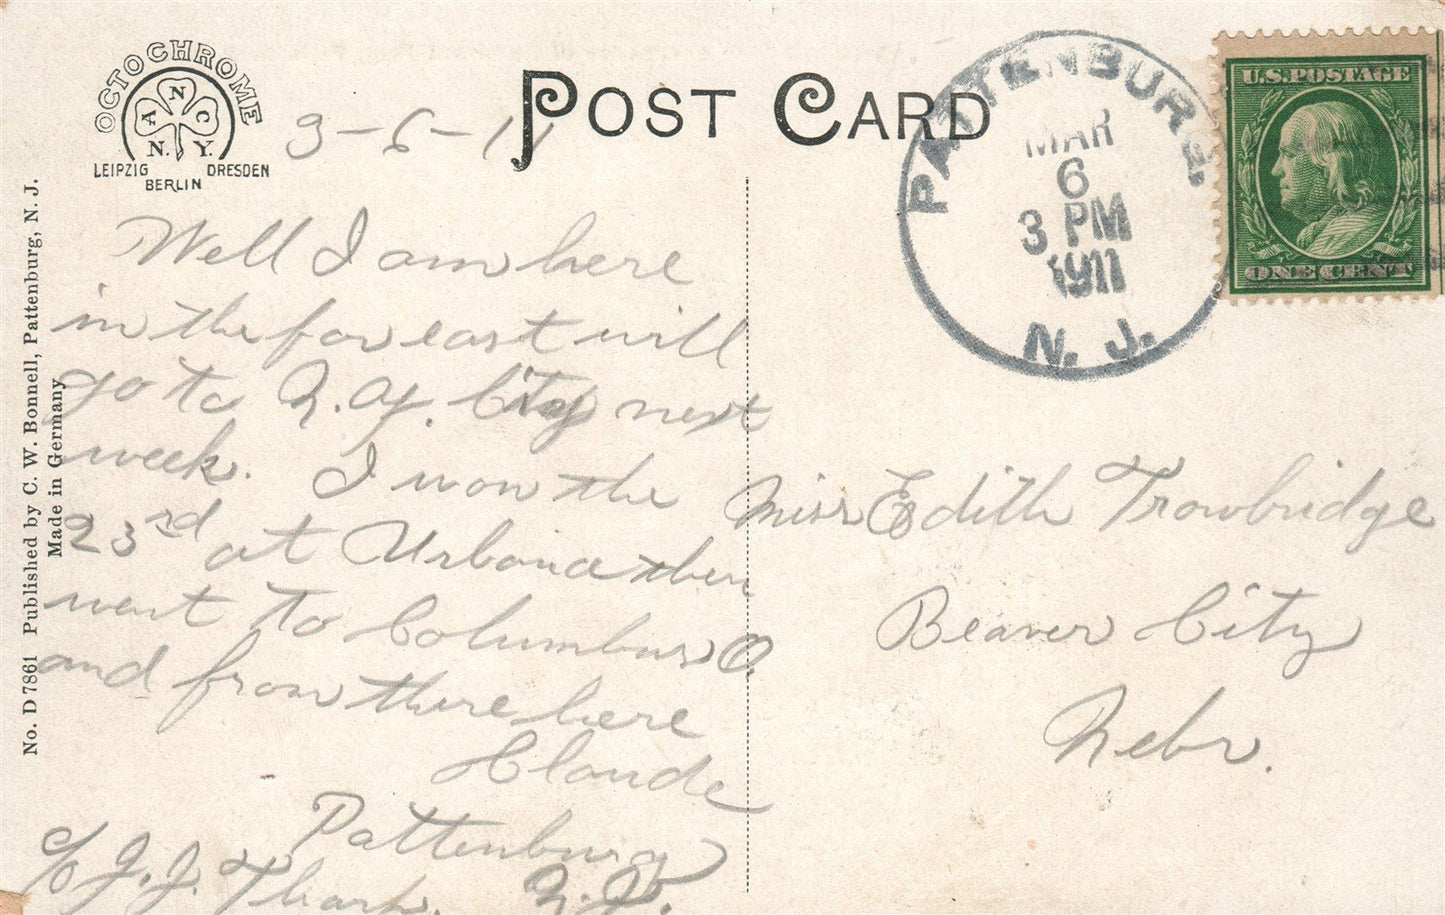 OCTOCHROME
A N C
N. Y.
LEIPZIG DRESDEN
BERLIN
POST CARD
3-6-11
PATTENBURG,
MAR
6
3 PM
1911
N. J.
U.S. POSTAGE
ONE CENT
No. D 7861 Published by C. W. Bonnell, Pattenburg, N. J.
Made in Germany
Well I am here
in the far east will
go to N.Y. City next
week. I won the
23rd at Urbana then
went to Columbus O.
and from there here
Claude
Pattenburg
c/o J. J. Tharp. N.J.
Miss Edith Trowbridge
Beaver City
Nebr.